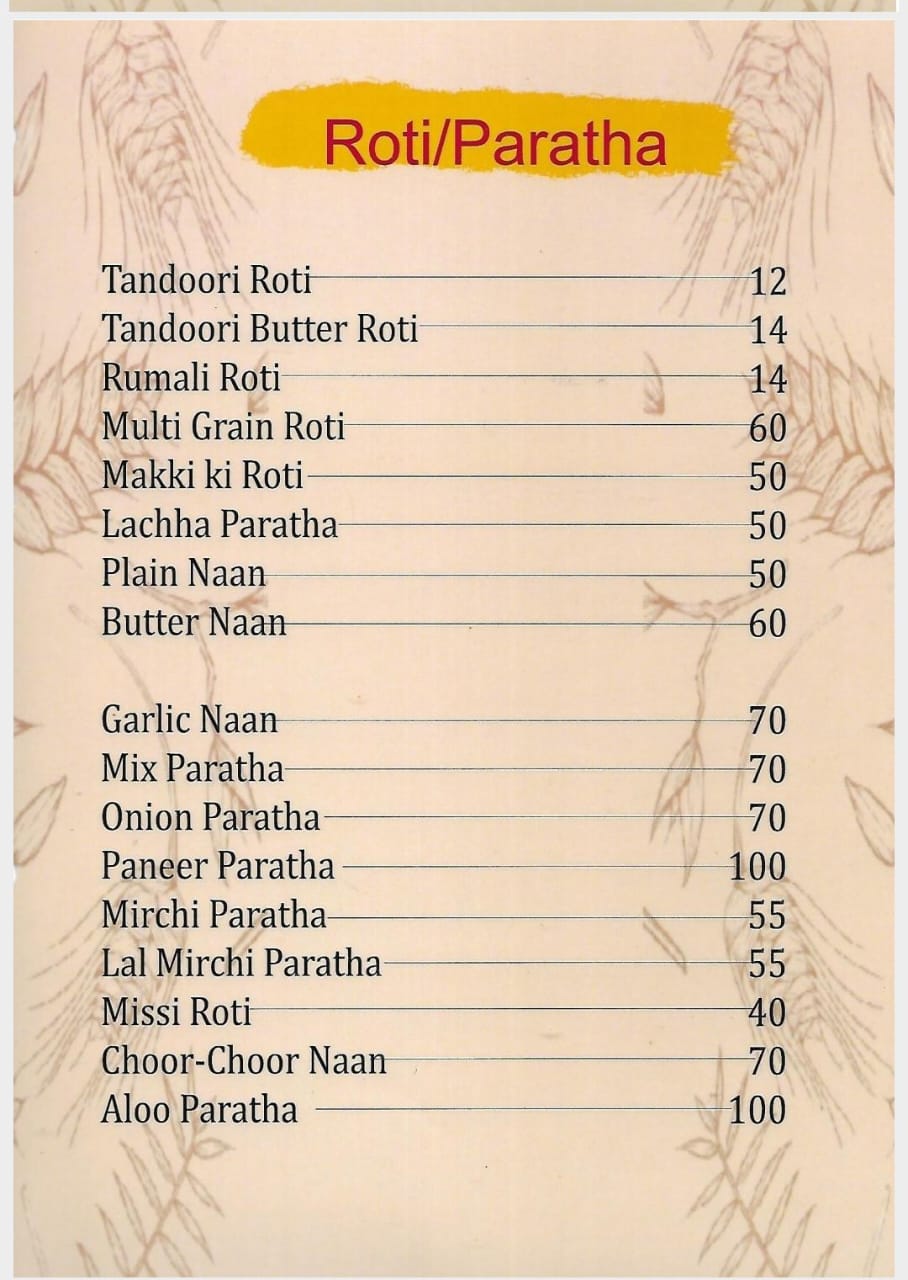 Roti/Paratha
Tandoori Roti 12
Tandoori Butter Roti 14
Rumali Roti 14
Multi Grain Roti 60
Makki ki Roti 50
Lachha Paratha 50
Plain Naan 50
Butter Naan 60
Garlic Naan 70
Mix Paratha 70
Onion Paratha 70
Paneer Paratha 100
Mirchi Paratha 55
Lal Mirchi Paratha 55
Missi Roti 40
Choor-Choor Naan 70
Aloo Paratha 100